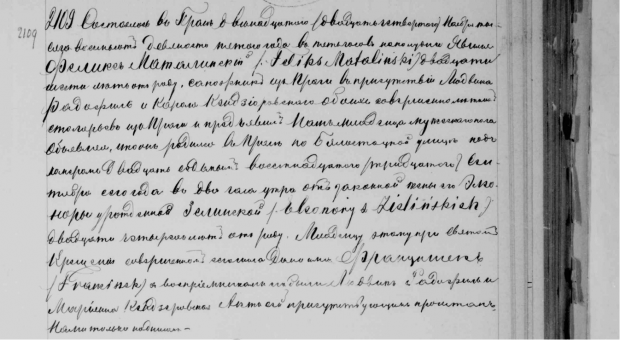 2109 Состоялось въ Прагѣ двѣнадцатаго (двадцать четвертаго) Ноября тысяча
восемьсотъ девяносто года въ четыре часа пополудни Явился
Феликсъ Маталинскій / Feliks Matalinski / двадцати
шести лѣтъ отъ роду, сапожникъ изъ Праги въ присутствіи Людвика
и Кароля обоихъ совершеннолѣтнихъ
изъ Праги и предъявилъ Намъ младенца мужескаго пола
объявляя, что онъ родился въ Прагѣ по Бялостоцкой улицѣ подъ
номеромъ двадцать седьмымъ восемнадцатаго (тридцатаго) Сен-
тября сего года въ два часа утра отъ законной жены его Элео-
норы урожденной Зелинской / Eleonory z Zielińskich /
двадцати четырехъ лѣтъ отъ роду. Младенцу этому при Святомъ
Крещеніи совершенномъ сего числа Дано имя Францишекъ
/ Franciszek / а воспріемниками были Людвикъ и
Марьянна Актъ сей присутствующимъ прочитанъ
Нами только подписанъ —
2109